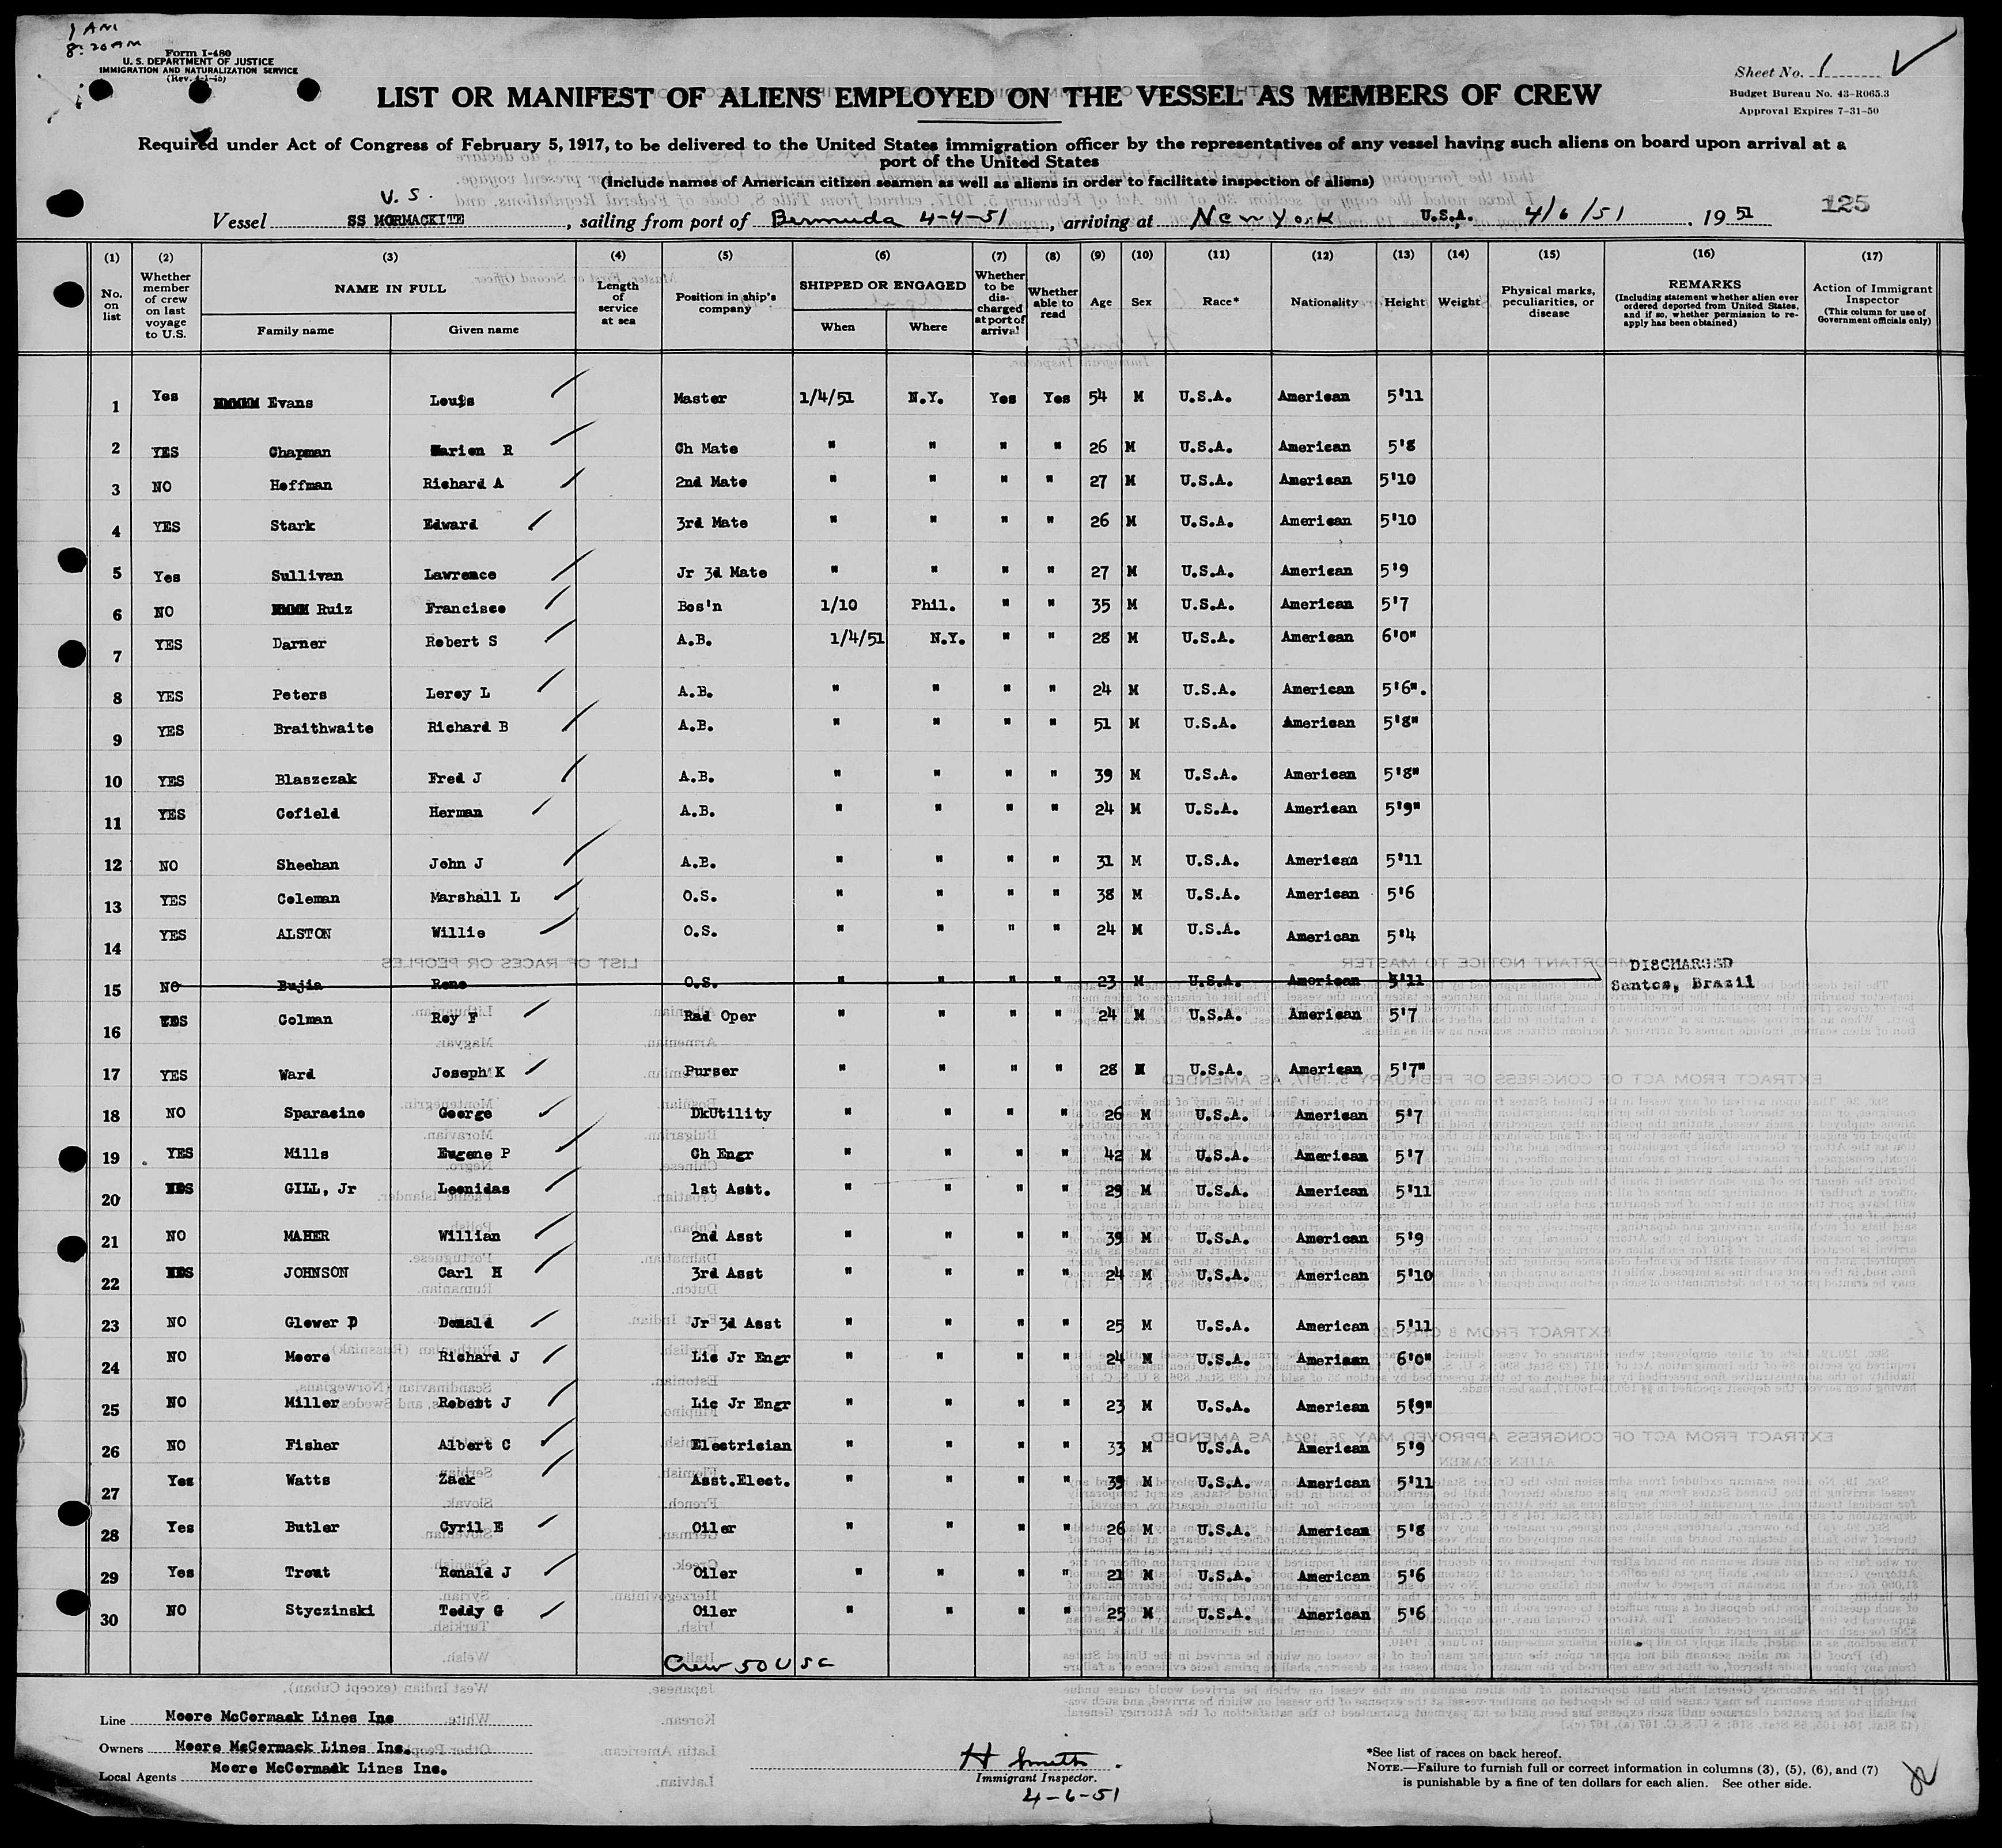 1 AM
8:20 AM
Form I-480
U. S. DEPARTMENT OF JUSTICE
IMMIGRATION AND NATURALIZATION SERVICE
(Rev. 4-1-48)
Sheet No. 1
Budget Bureau No. 43-R065.3
Approval Expires 7-31-50
LIST OR MANIFEST OF ALIENS EMPLOYED ON THE VESSEL AS MEMBERS OF CREW
Required under Act of Congress of February 5, 1917, to be delivered to the United States immigration officer by the representatives of any vessel having such aliens on board upon arrival at a
port of the United States
(Include names of American citizen seamen as well as aliens in order to facilitate inspection of aliens)
U. S.
125
Vessel SS MORMACKITE, sailing from port of Bermuda 4-4-51, arriving at New York U.S.A. 4/6/51, 1951
(1) (2) (3) (4) (5) (6) (7) (8) (9) (10) (11) (12) (13) (14) (15) (16) (17)
No. on list
Whether member of crew on last voyage to U.S.
NAME IN FULL
Family name Given name
Length of service at sea
Position in ship's company
SHIPPED OR ENGAGED
When Where
Whether to be discharged at port of arrival
Whether able to read
Age Sex Race* Nationality Height Weight
Physical marks, peculiarities, or disease
REMARKS
(Including statement whether alien ever ordered deported from United States, and if so, whether permission to reapply has been obtained)
Action of Immigrant Inspector
(This column for use of Government officials only)
1 Yes Evans Louis Master 1/4/51 N.Y. Yes Yes 54 M U.S.A. American 5'11
2 YES Chapman Marion R Ch Mate " " " " 26 M U.S.A. American 5'8
3 NO Hoffman Richard A 2nd Mate " " " " 27 M U.S.A. American 5'10
4 YES Stark Edward 3rd Mate " " " " 26 M U.S.A. American 5'10
5 Yes Sullivan Lawrence Jr 3d Mate " " " " 27 M U.S.A. American 5'9
6 NO Ruiz Francisco Bos'n 1/10 Phil. " " 35 M U.S.A. American 5'7
7 YES Darner Robert S A.B. 1/4/51 N.Y. " " 28 M U.S.A. American 6'0"
8 YES Peters Leroy L A.B. " " " " 24 M U.S.A. American 5'6".
9 YES Braithwaite Richard B A.B. " " " " 51 M U.S.A. American 5'8"
10 YES Blaszczak Fred J A.B. " " " " 39 M U.S.A. American 5'8"
11 YES Cofield Herman A.B. " " " " 24 M U.S.A. American 5'9"
12 NO Sheehan John J A.B. " " " " 31 M U.S.A. American 5'11
13 YES Coleman Marshall L O.S. " " " " 38 M U.S.A. American 5'6
14 YES ALSTON Willie O.S. " " " " 24 M U.S.A. American 5'4
15 NO Bujia Rene O.S. " " " " 23 M U.S.A. American 5'11 DISCHARGED Santos, Brazil
16 YES Colman Roy F Rad Oper " " " " 24 M U.S.A. American 5'7
17 YES Ward Joseph K Purser " " " " 28 M U.S.A. American 5'7"
18 NO Sparacino George DkUtility " " " " 26 M U.S.A. American 5'7
19 YES Mills Eugene P Ch Engr " " " " 42 M U.S.A. American 5'7
20 YES GILL, Jr Leonidas 1st Asst. " " " " 29 M U.S.A. American 5'11
21 NO MAHER Willian 2nd Asst " " " " 39 M U.S.A. American 5'9
22 YES JOHNSON Carl H 3rd Asst " " " " 24 M U.S.A. American 5'10
23 NO Glower D Donald Jr 3d Asst " " " " 25 M U.S.A. American 5'11
24 NO Moore Richard J Lic Jr Engr " " " " 24 M U.S.A. American 6'0"
25 NO Miller Robert J Lic Jr Engr " " " " 23 M U.S.A. American 5'9"
26 NO Fisher Albert C Electrician " " " " 33 M U.S.A. American 5'9
27 Yes Watts Zack Asst.Elect. " " " " 39 M U.S.A. American 5'11
28 Yes Butler Cyril E Oiler " " " " 26 M U.S.A. American 5'8
29 Yes Trout Ronald J Oiler " " " " 21 M U.S.A. American 5'6
30 NO Styczinski Teddy G Oiler " " " " 25 M U.S.A. American 5'6
Crew 50 USC
Line Moore McCormack Lines Inc
Owners Moore McCormack Lines Inc.
Local Agents Moore McCormack Lines Inc.
H Smith
Immigrant Inspector.
4-6-51
*See list of races on back hereof.
NOTE.—Failure to furnish full or correct information in columns (3), (5), (6), and (7)
is punishable by a fine of ten dollars for each alien. See other side.